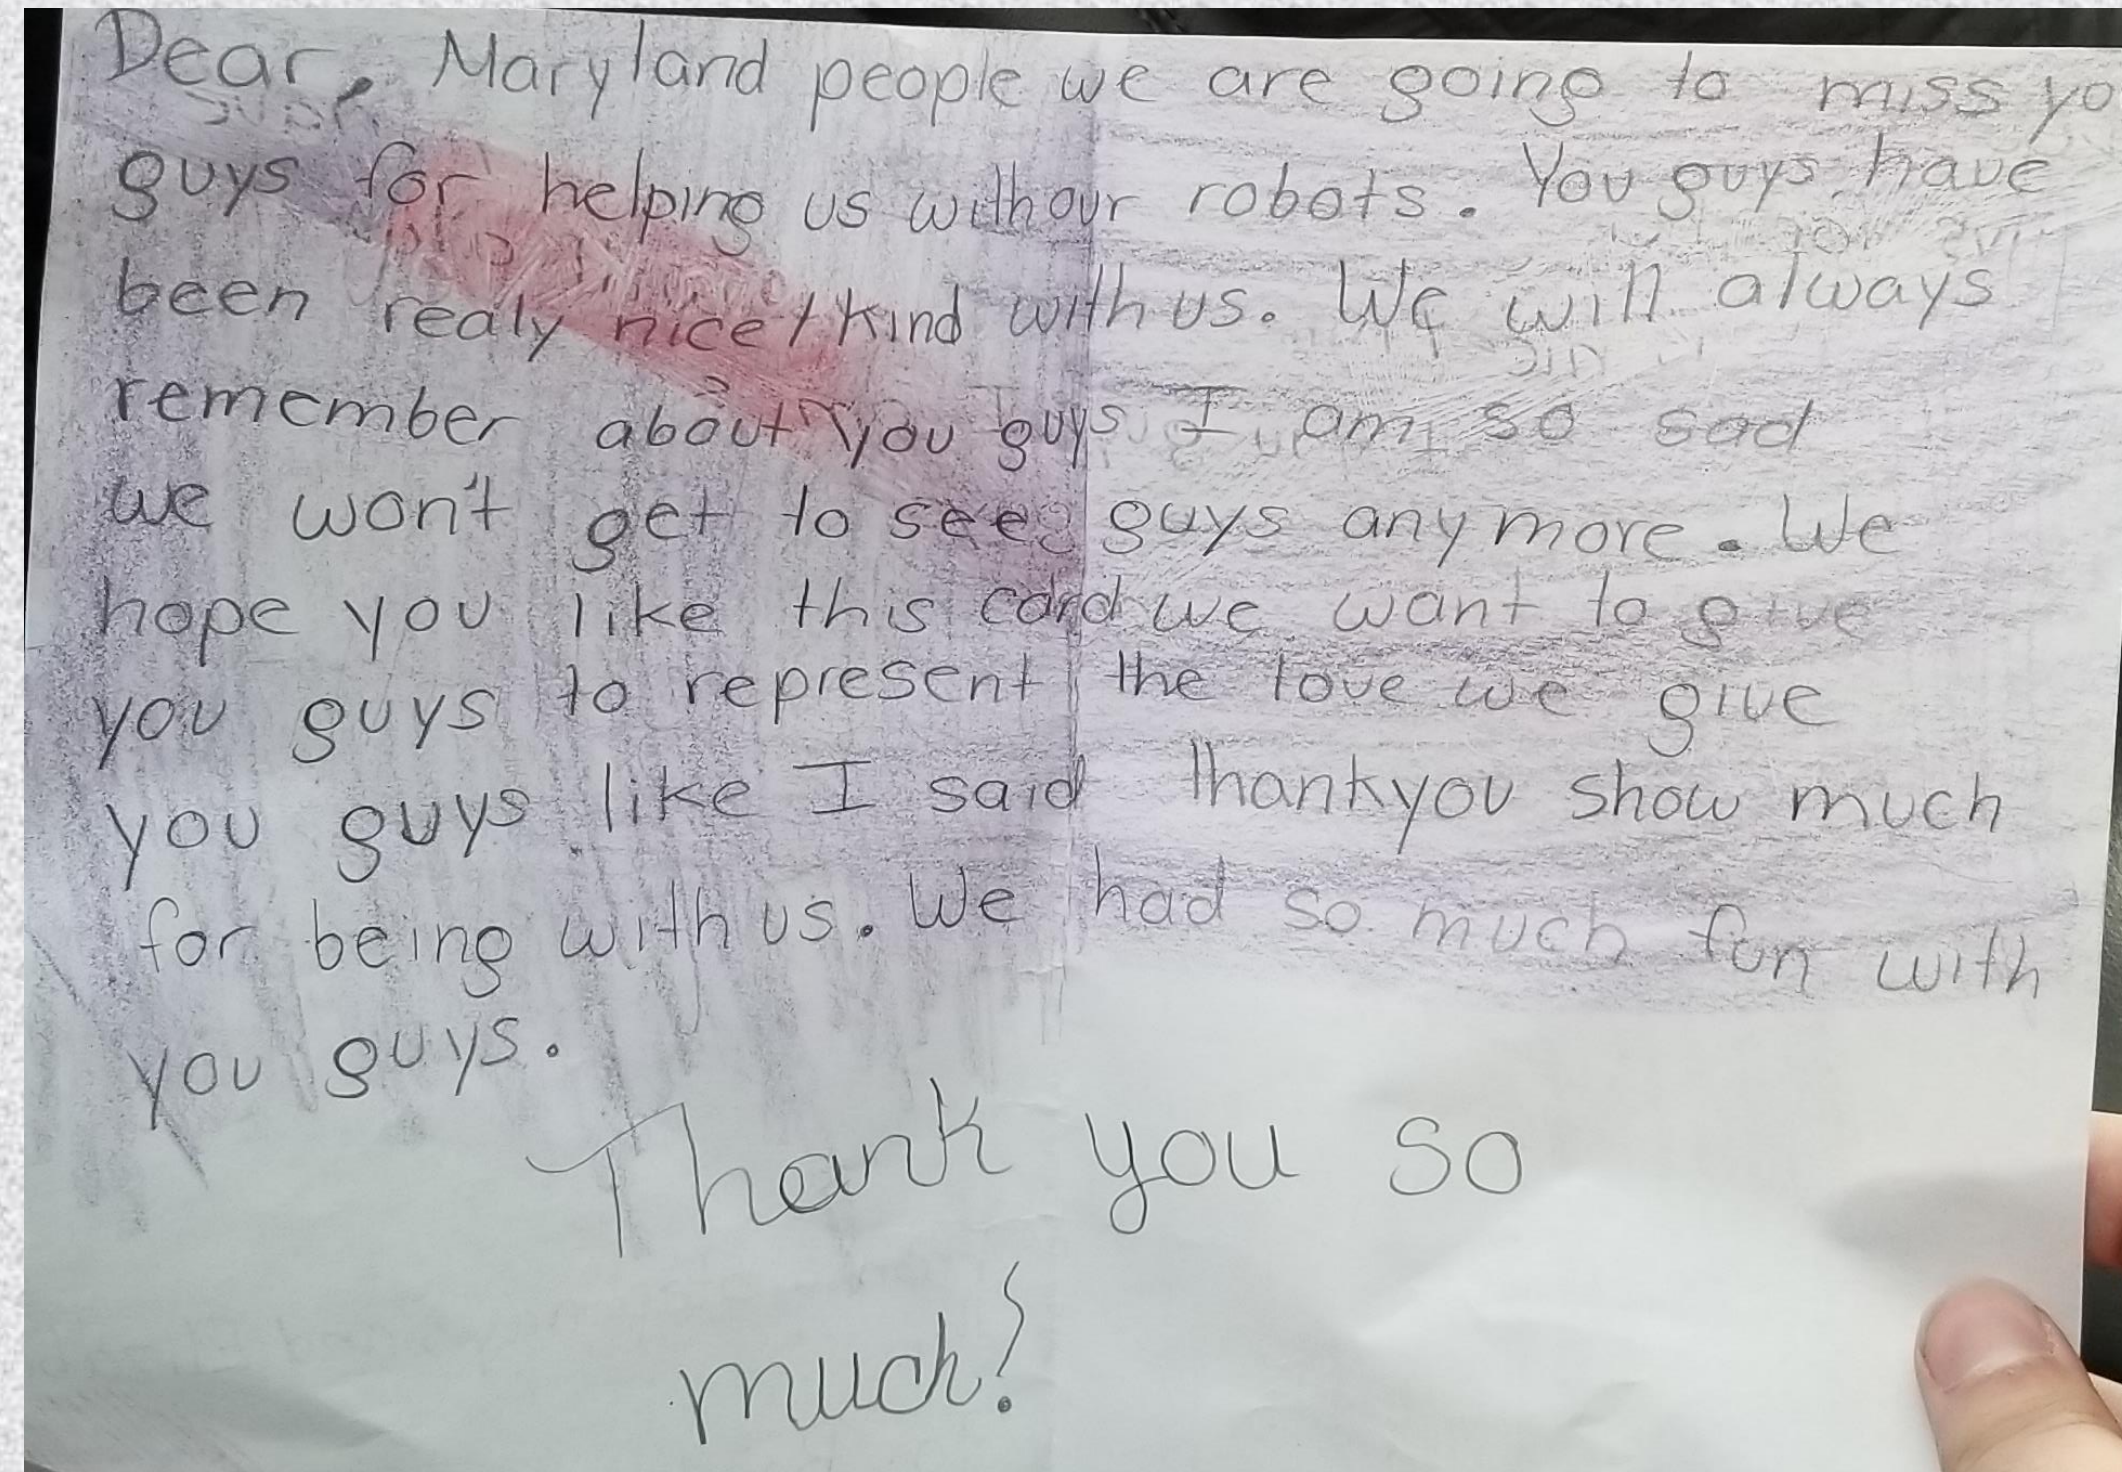 Dear, Maryland people we are going to miss yo
guys for helping us with our robots. You guys have
been realy nice / kind with us. We will always
remember about you guys I am so sad
we won't get to see guys anymore. We
hope you like this card we want to give
you guys to represent the love we give
you guys like I said thankyou show much
for being with us. We had so much fun with
you guys.
Thank you so
much!